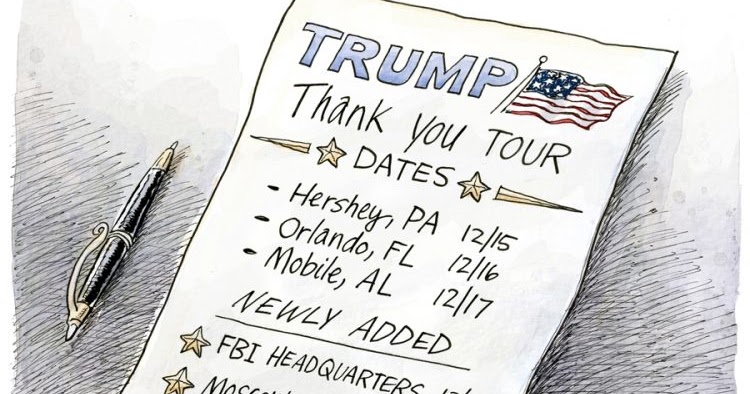 TRUMP
Thank You TOUR
DATES
- Hershey, PA 12/15
- Orlando, FL 12/16
- Mobile, AL 12/17
NEWLY ADDED
FBI HEADQUARTERS